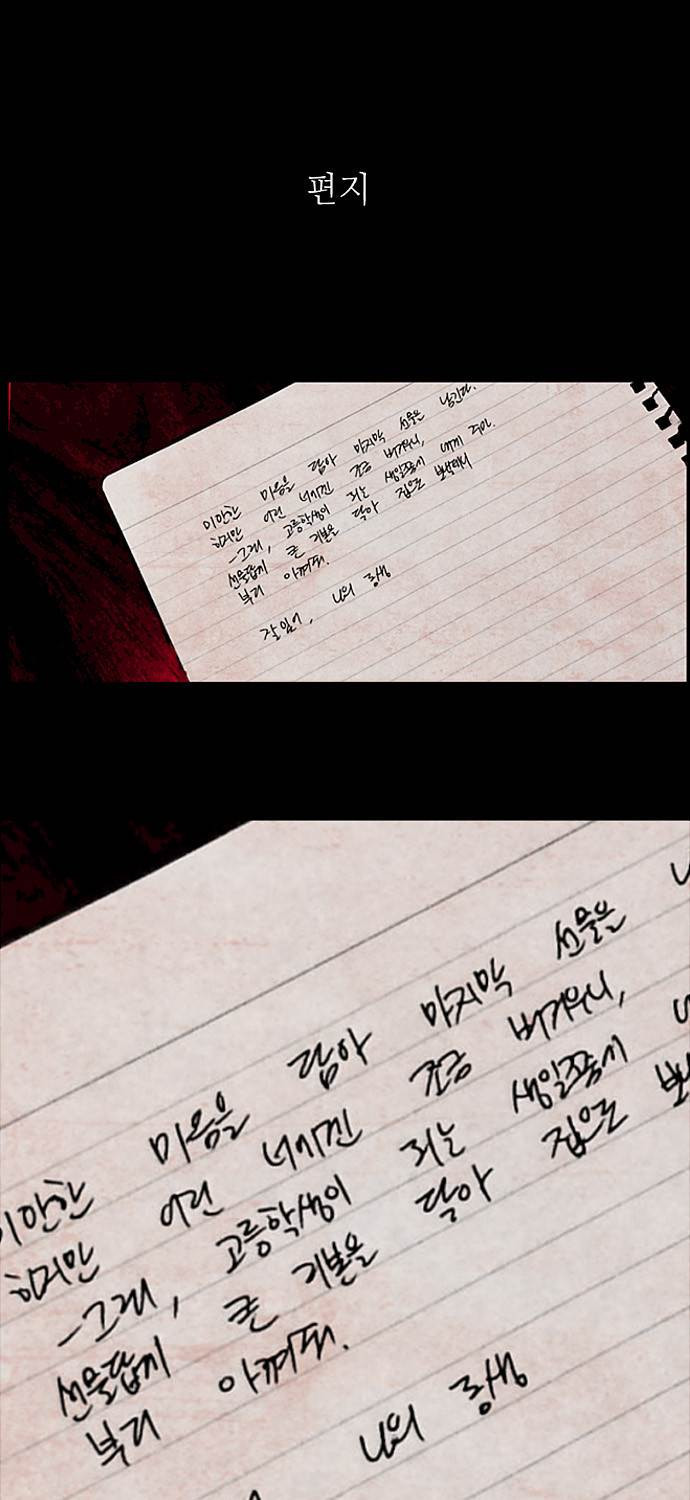 편지
미안한 마음을 담아 마지막 선물은 남긴다.
하지만 어린 너에겐 조금 버거우니,
-그래, 고등학생이 되는 생일쯤에 네게 주마.
선물답게 큰 리본을 달아 집으로 보낼테니
부디 아껴줘.
잘 있어, 나의 동생
미안한 마음을 담아 마지막 선물은
하지만 어린 너에겐 조금 버거우니,
-그래, 고등학생이 되는 생일쯤에
선물답게 큰 리본을 달아 집으로
부디 아껴줘.
나의 동생